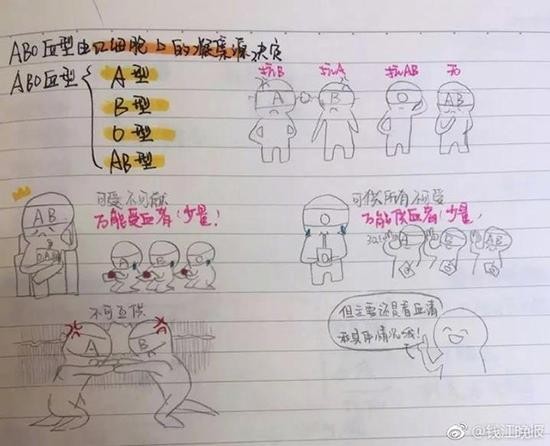 ABO血型由红细胞上的凝集源决定
ABO血型
A型
B型
O型
AB型
抗B 抗A 抗AB 无
A B O AB
可受不可献
万能受血者(少量!
AB
A B O
可供所有不可受
万能供血者(少量!
O
A B AB
不可互供
A B
但主要还是看血清
和具体情况哦!
@钱江晚报